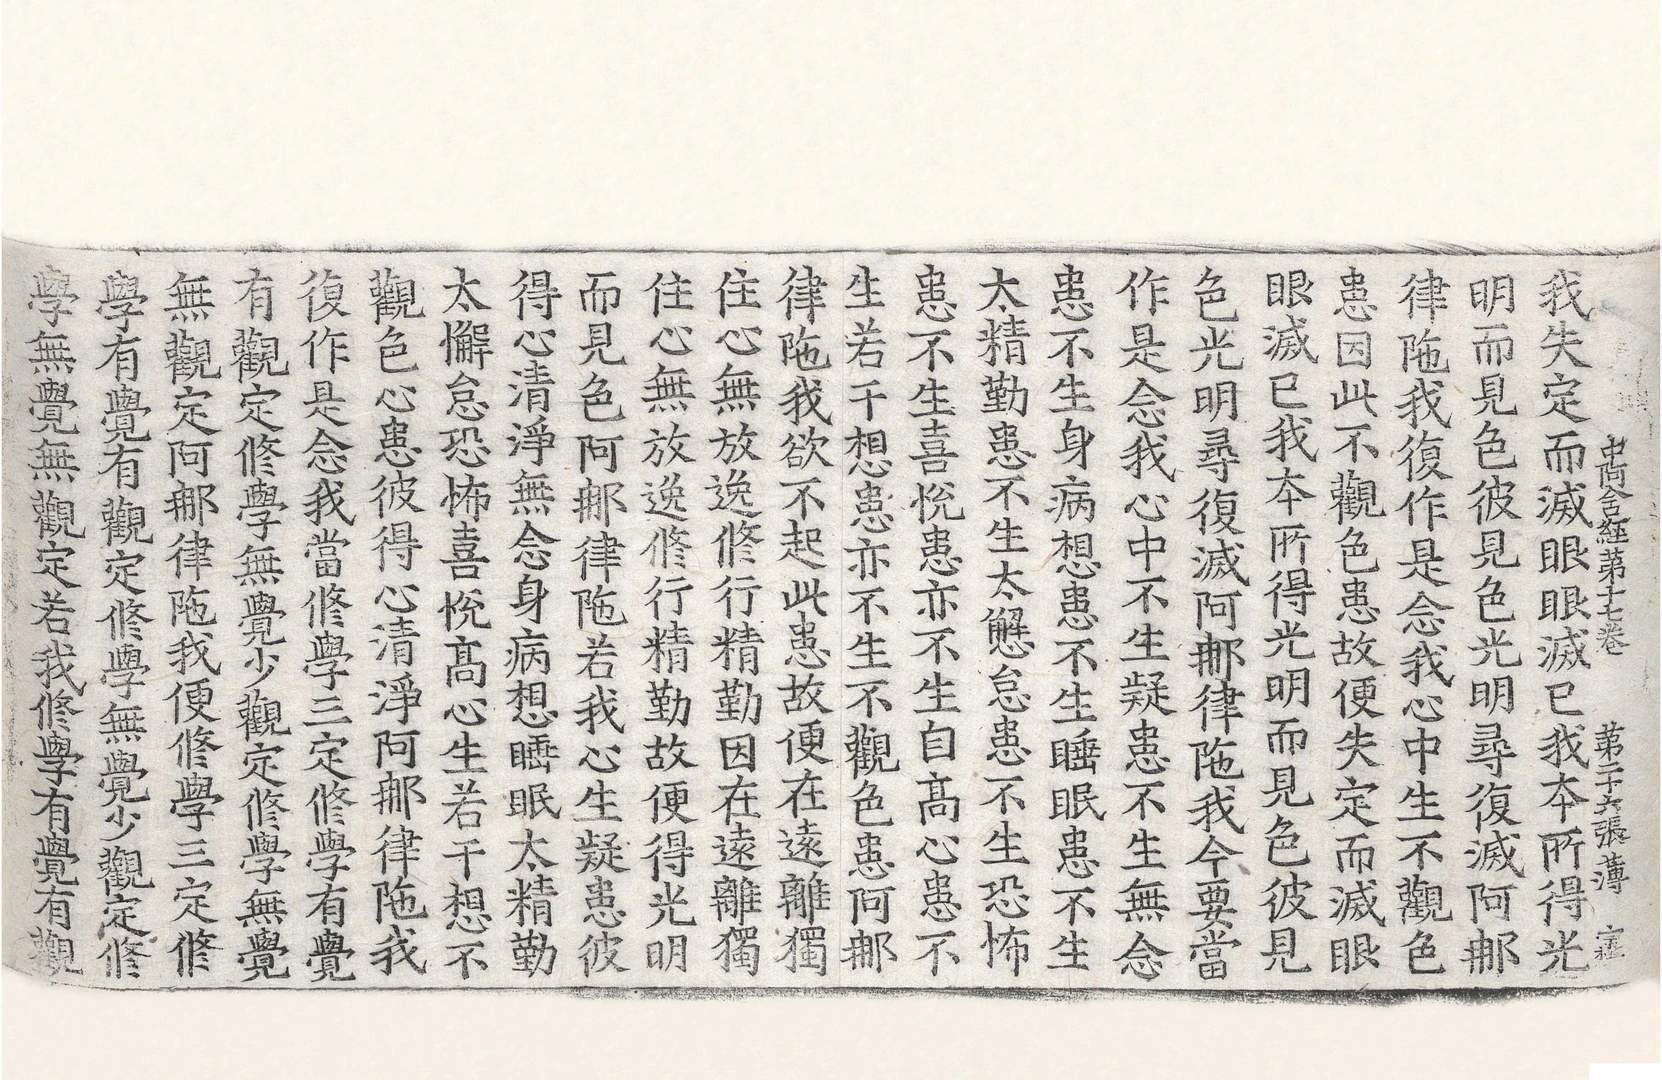 中阿含經第十七卷 第二十六張 薄
我失定而滅眼眼滅已我本所得光
明而見色彼見色光明尋復滅阿那
律陁我復作是念我心中生不觀色
患因此不觀色患故便失定而滅眼
眼滅已我本所得光明而見色彼見
色光明尋復滅阿那律陁我今要當
作是念我心中不生疑患不生無念
患不生身病想患不生睡眠患不生
太精勤患不生太懈怠患不生恐怖
患不生喜悅患亦不生自髙心患不
生若干想患亦不生不觀色患阿那
律陁我欲不起此患故便在遠離獨
住心無放逸修行精勤因在遠離獨
住心無放逸修行精勤故便得光明
而見色阿那律陁若我心生疑患彼
得心清淨無念身病想睡眠太精勤
太懈怠恐怖喜悅髙心生若干想不
觀色心患彼得心清淨阿那律陁我
復作是念我當修學三定修學有覺
有觀定修學無覺少觀定修學無覺
無觀定阿那律陁我便修學三定修
學有覺有觀定修學無覺少觀定修
學無覺無觀定若我修學有覺有觀